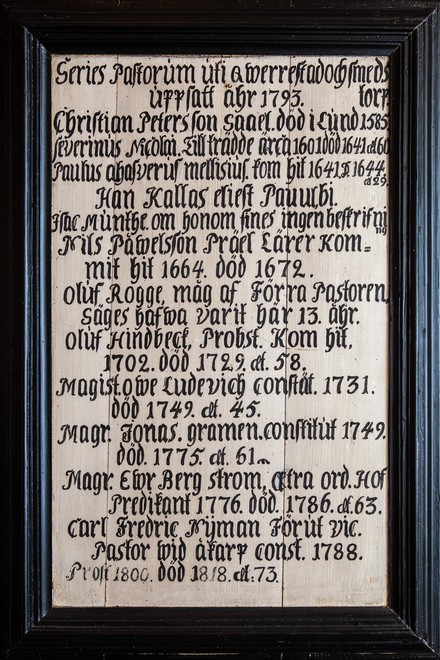 Series Pastorum uti Qwerrestad och smeds
uppsatt åhr 1793. torp.
Christian Petersson Gagel. död i Lund 1585
Severinus Nicolai. Tillträdde ærca 1601 död 1641 æt 60
Paulus ahasverus mellisius. kom hit 1641 1644.
æt 29.
Han Kallas eliest Pauulbi.
Isac Munthe. om honom fines ingen beskrifni
ng
Nils Påwelsson Präel Lärer Kom=
mit hit 1664. död 1672.
oluf Rogge, måg af Förra Pastoren,
Säges hafwa varit här 13. åhr.
oluf Hindbeck, Probst. Kom hit,
1702. död 1729. æt. 58.
Magist. owe Ludevich constit. 1731.
död 1749. æt. 45.
Magr. Jonas. gramen. constitut 1749.
död. 1775. æt. 61.
Magr. Etvr Berg strom, Extra ord. Hof
Predikant 1776. död. 1786. æt. 63.
Carl Fredric Nyman Förut vic.
Pastor wid åkarp const. 1788.
Prost 1800. död 1818. æt. 73.